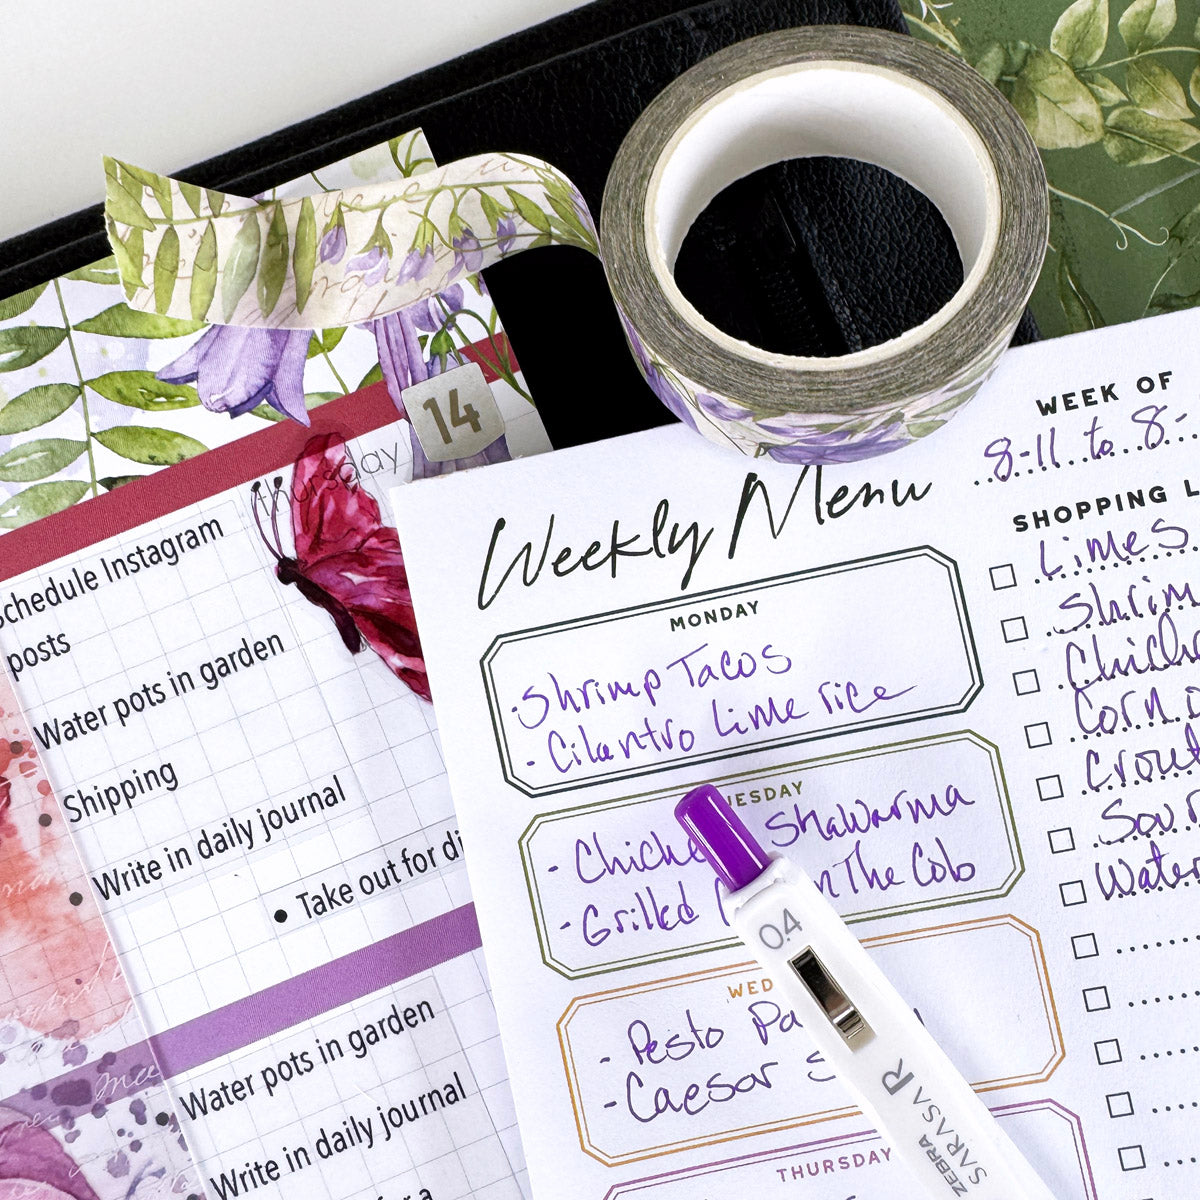 14
thursday
Schedule Instagram
posts
Water pots in garden
Shipping
Write in daily journal
• Take out for
Water pots in garden
Write in daily journal
Weekly Menu
MONDAY
-Shrimp Tacos
- Cilantro Lime rice
- Shawarma
- Grilled The Cob
- Pesto
- Caesar
THURSDAY
WEEK OF
8-11 to 8-
SHOPPING
Limes
Water
0.4
SARASA R
ZEBRA
SARASA